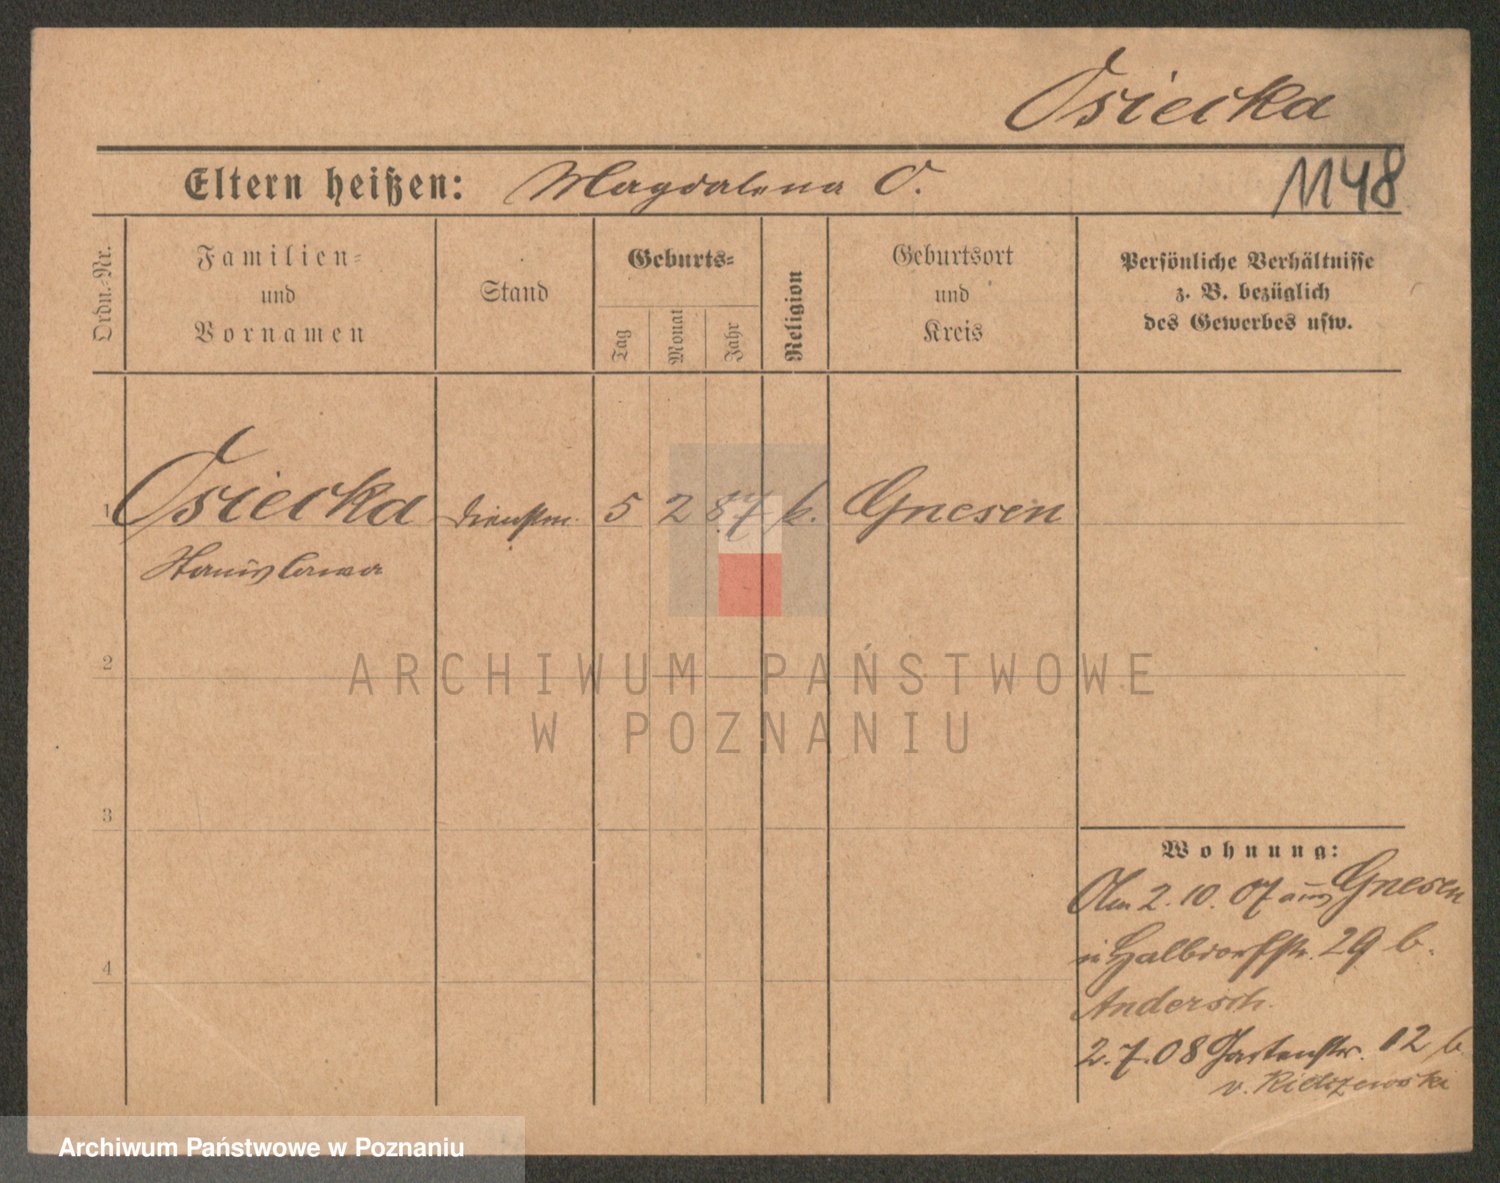 Osiecka
Eltern heißen: Magdalena O.
1148
Ordn.-Nr.
Familien-
und
Vornamen
Stand
Geburts-
Tag
Monat
Jahr
Religion
Geburtsort
und
Kreis
Persönliche Verhältnisse
z. B. bezüglich
des Gewerbes usw.
1 Osiecka 5 2 87 k. Gnesen
Stanislawa
2
ARCHIWUM PAŃSTWOWE
W POZNANIU
3
Wohnung:
Am 2. 10. 07 aus Gnesen
in Halbdorfstr. 29 b.
4
Andersch.
2. 7. 08 Gartenstr. 12 b.
v.
Archiwum Państwowe w Poznaniu